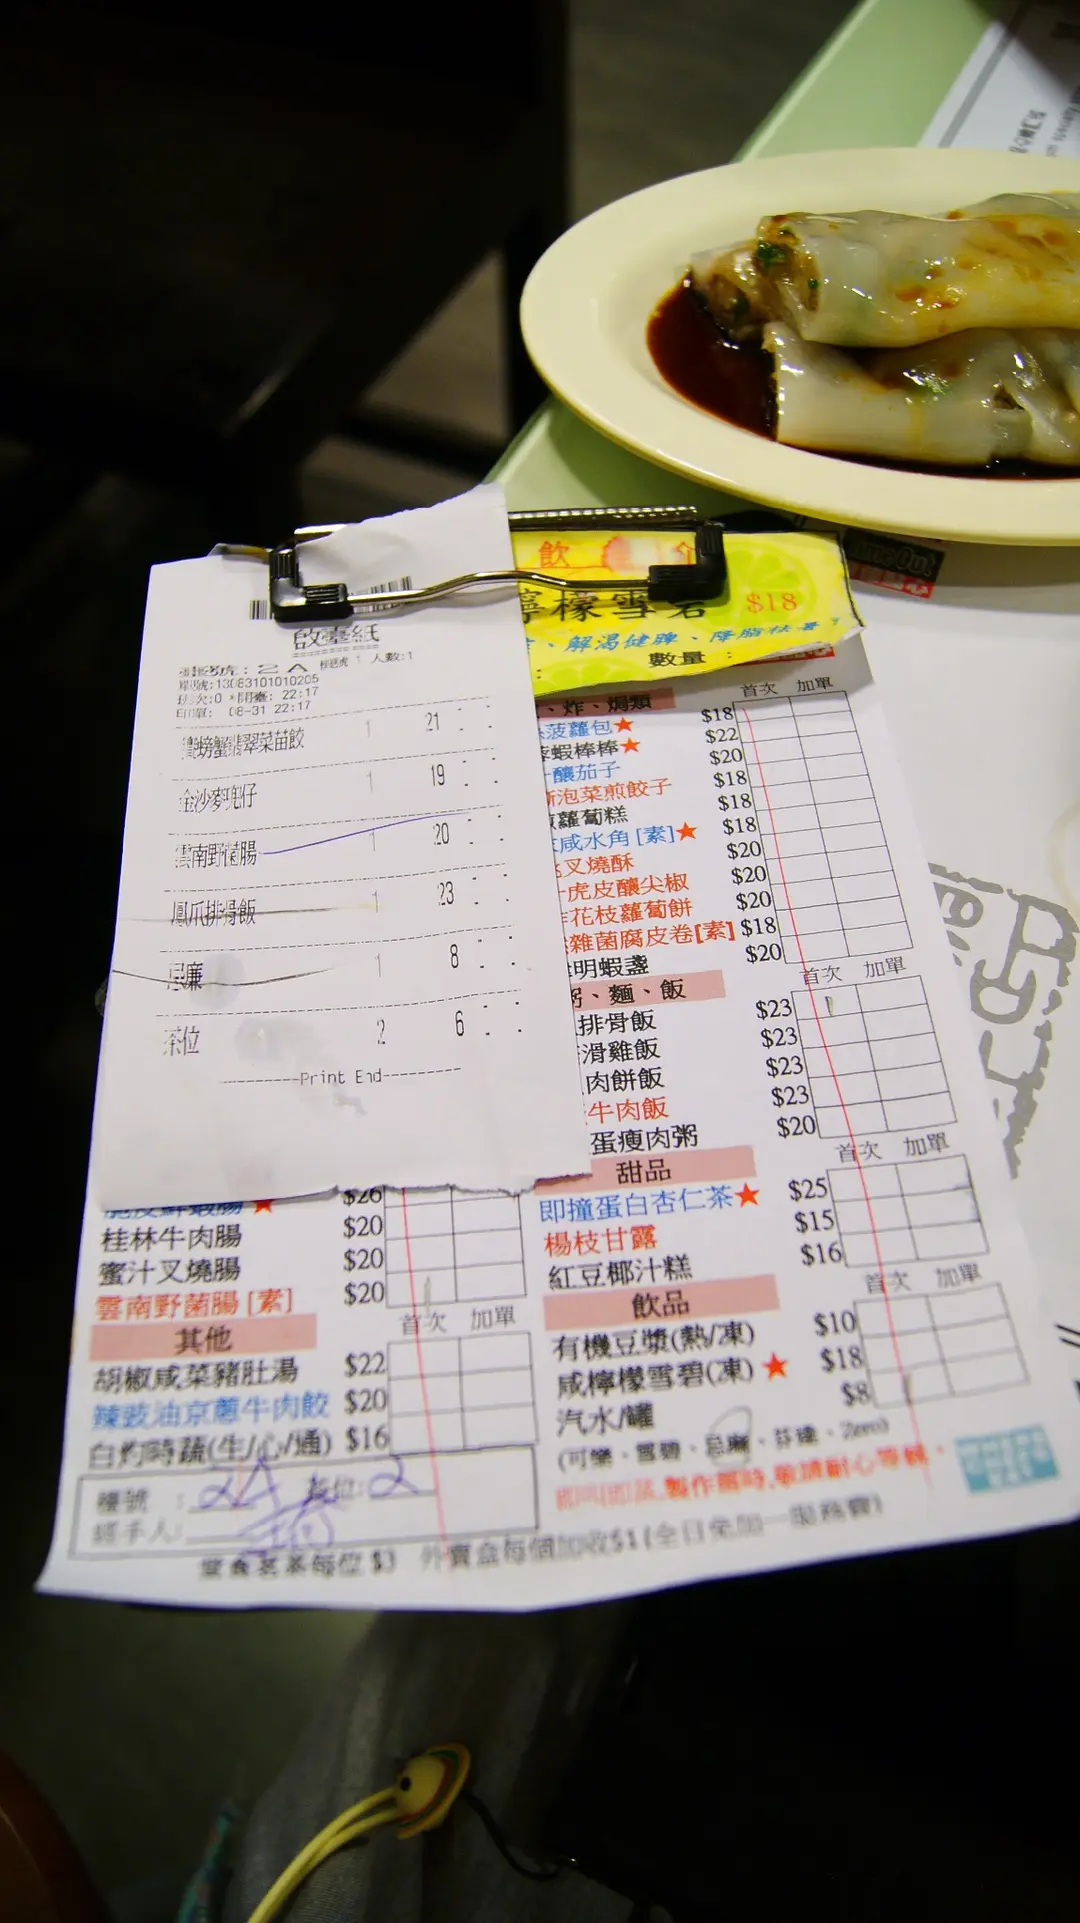 啟臺紙
2A 櫃號 1 人數:1
單號:13083101010205
班次:0 *開臺: 22:17
印單: 08-31 22:17
螃蟹翡翠菜苗餃 1 21
金沙麥兜仔 1 19
雲南野菌腸 1 20
鳳爪排骨飯 1 23
忌廉 1 8
茶位 2 6
Print End
飲
檸檬雪碧 $18
解渴健脾、降脂袪暑!
數量:
、炸、焗類 首次 加單
菠蘿包★ $18
蝦棒棒★ $22
釀茄子 $20
泡菜煎餃子 $18
蘿蔔糕 $18
咸水角[素]★ $18
叉燒酥 $20
虎皮釀尖椒 $20
花枝蘿蔔餅 $20
雜菌腐皮卷[素] $18
明蝦盞 $20
粥、麵、飯 首次 加單
排骨飯 $23
滑雞飯 $23
肉餅飯 $23
牛肉飯 $23
蛋瘦肉粥 $20
甜品 首次 加單
即撞蛋白杏仁茶★ $25
楊枝甘露 $15
紅豆椰汁糕 $16
飲品 首次 加單
有機豆漿(熱/凍) $10
咸檸檬雪碧(凍)★ $18
汽水/罐 $8
(可樂、雪碧、忌廉、芬達、Zero)
即叫即蒸,製作需時,敬請耐心等候。
$26
桂林牛肉腸 $20
蜜汁叉燒腸 $20
雲南野菌腸[素] $20
其他 首次 加單
胡椒咸菜豬肚湯 $22
辣豉油京蔥牛肉餃 $20
白灼時蔬(生/心/通) $16
檯號:2A 茶位:2
經手人:
堂食茗茶每位 $3 外賣盒每個加收$1(全日免加一服務費)
Time Out